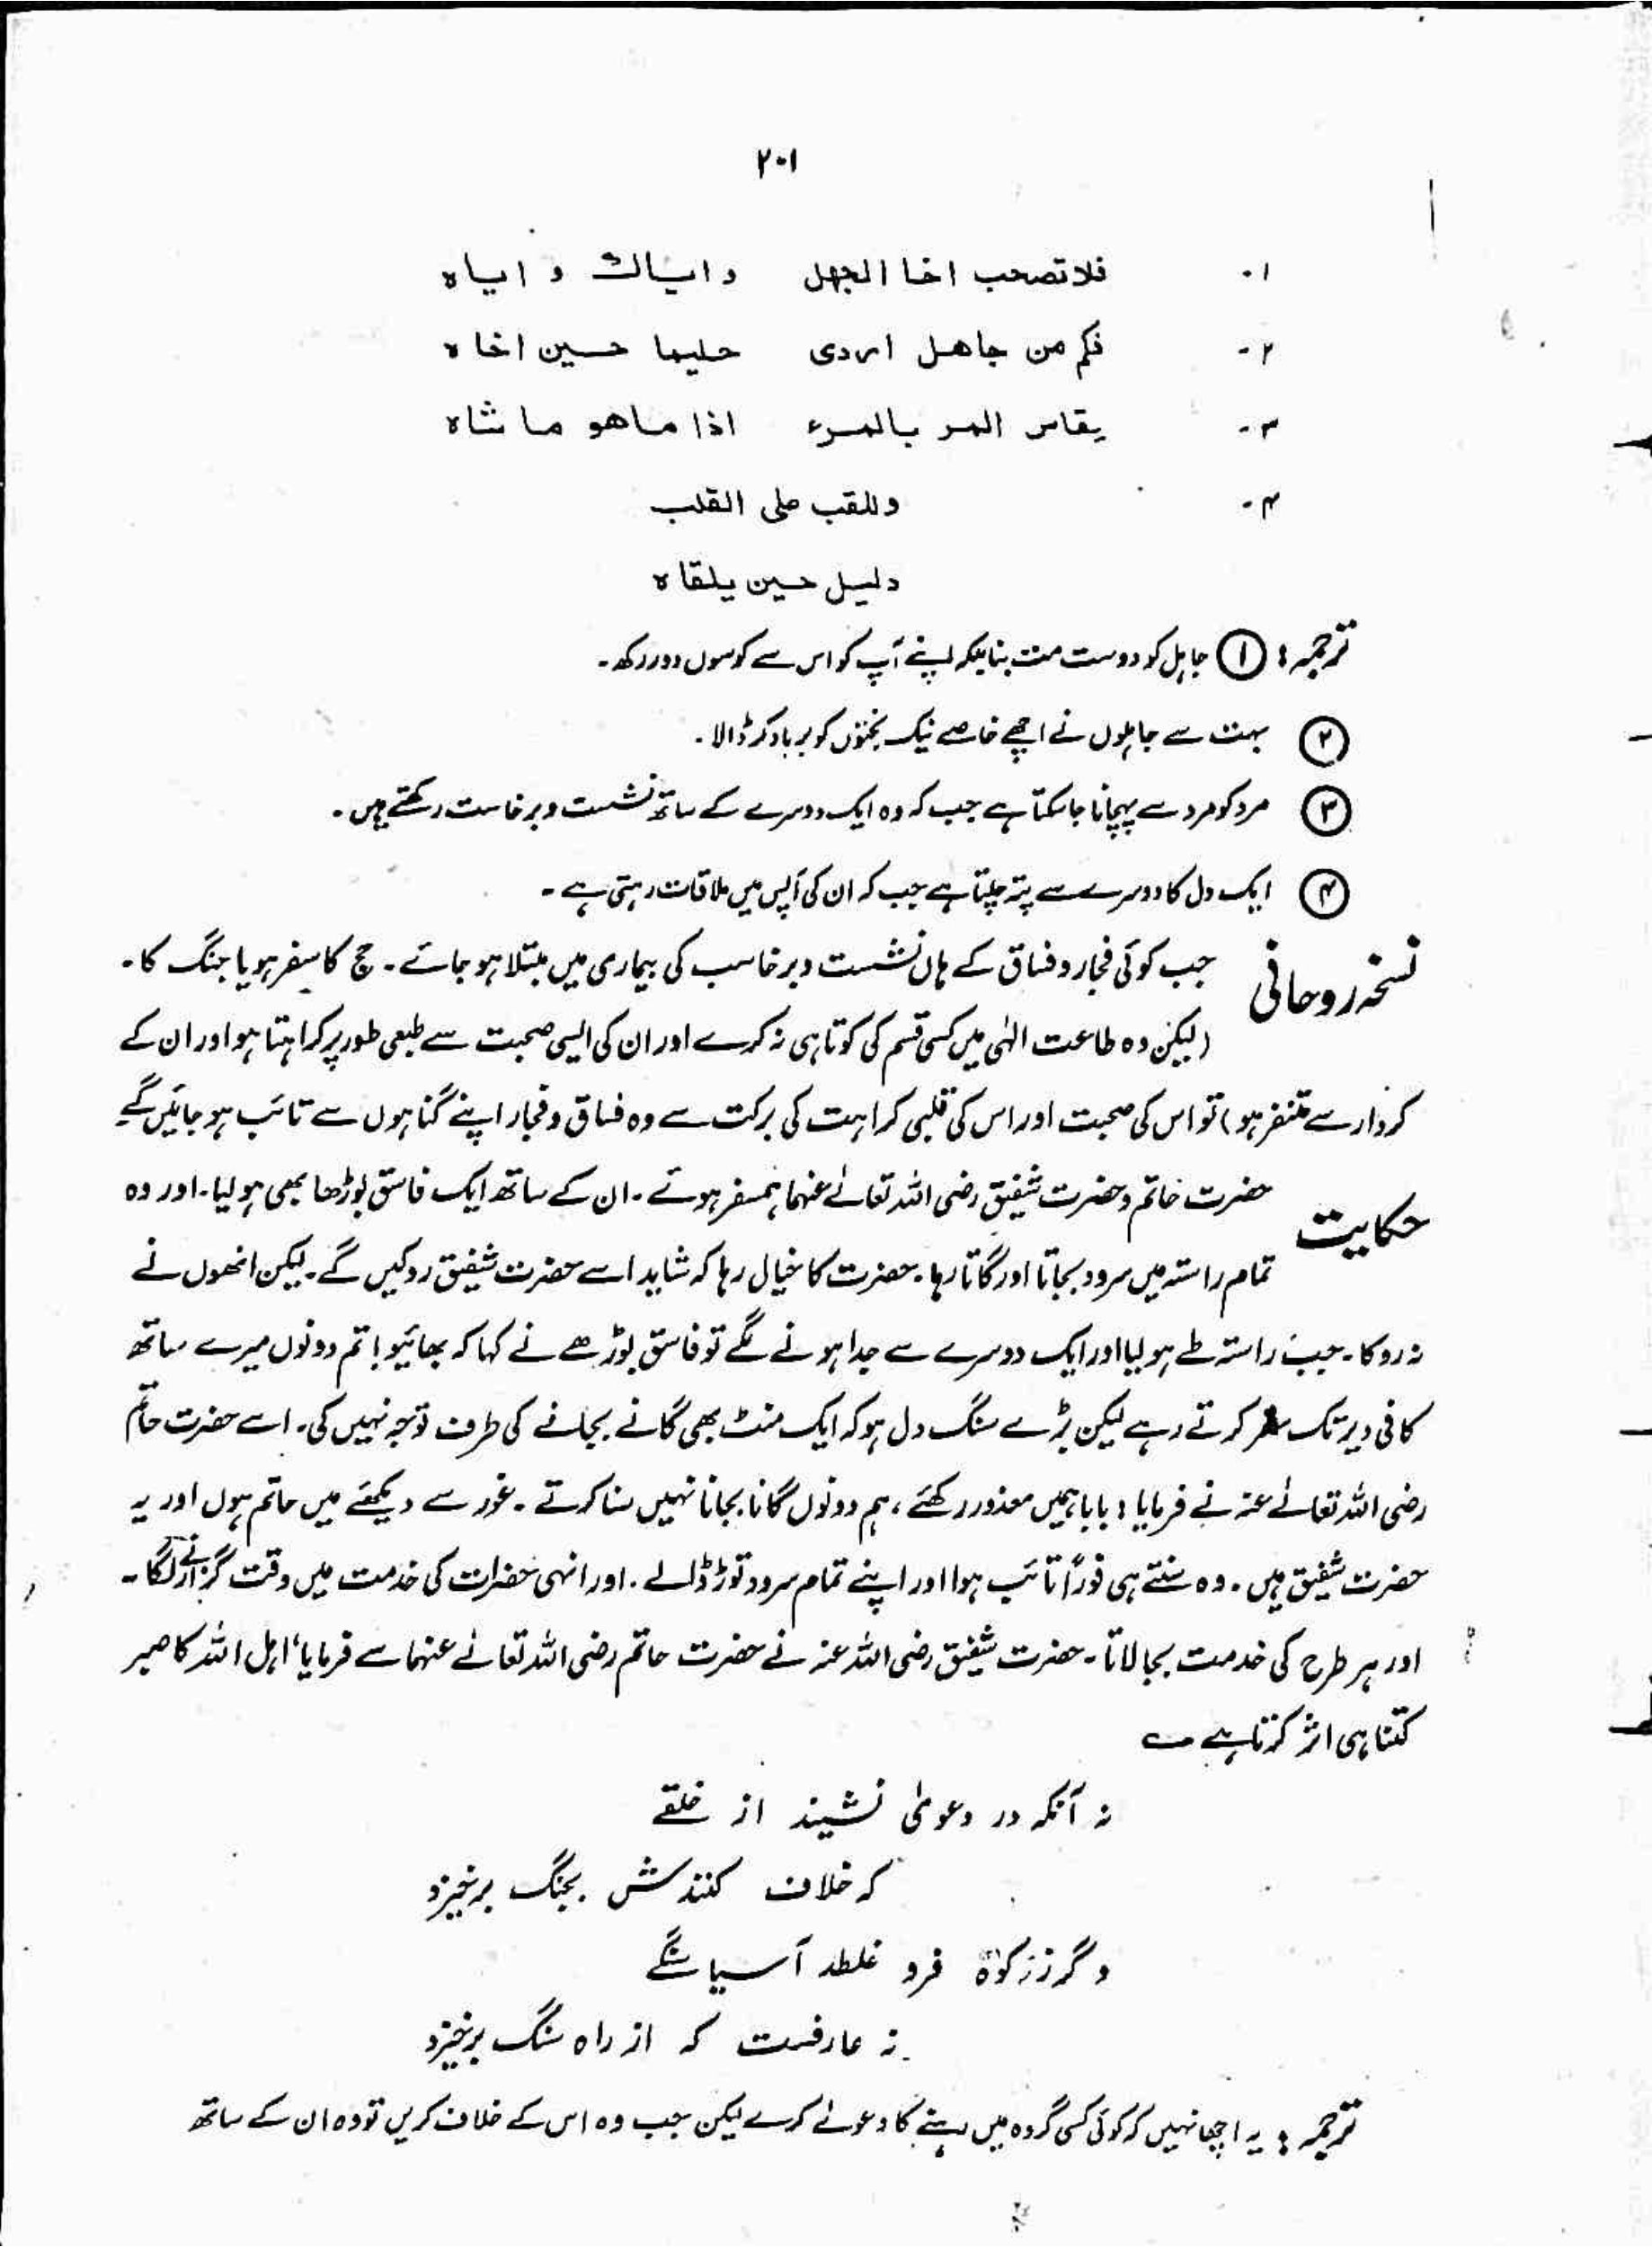 ۲۰۱
۱- فلا تصحب اخا الجهل واياك و اياه
۲- فكم من جاهل اردى حليما حسين اخاه
۳- يقاس المر بالمرء اذا ماهو ما شاه
۴- وللقب على القلب
دليل حسين يلقاه
ترجمہ: ① جاہل کو دوست مت بنا بلکہ اپنے آپ کو اس سے کوسوں دور رکھ۔
② بہت سے جاہلوں نے اچھے خاصے نیک بختوں کو برباد کر ڈالا۔
③ مرد کو مرد سے پہچانا جا سکتا ہے جب کہ وہ ایک دوسرے کے ساتھ نشست و برخاست رکھتے ہیں۔
④ ایک دل کا دوسرے سے پتہ چلتا ہے جب کہ ان کی آپس میں ملاقات رہتی ہے۔
نسخہ روحانی جب کوئی فجار و فساق کے ہاں نشست و برخاسب کی بیماری میں مبتلا ہو جائے۔ حج کا سفر ہو یا جنگ کا۔
(لیکن وہ طاعت الہٰی میں کسی قسم کی کوتاہی نہ کرے اور ان کی ایسی صحبت سے طبعی طور پر کراہتا ہو اور ان کے
کردار سے متنفر ہو) تو اس کی صحبت اور اس کی قلبی کراہت کی برکت سے وہ فساق و فجار اپنے گناہوں سے تائب ہو جائیں گے۔
حکایت حضرت خاتم و حضرت شفیق رضی اللہ تعالےٰ عنہما ہمسفر ہوئے۔ ان کے ساتھ ایک فاسق بوڑھا بھی ہو لیا۔ اور وہ
تمام راستہ میں سرود بجاتا اور گاتا رہا۔ حضرت کا خیال رہا کہ شاید اسے حضرت شفیق روکیں گے۔ لیکن انھوں نے
نہ روکا۔ جب راستہ طے ہو لیا اور ایک دوسرے سے جدا ہونے لگے تو فاسق بوڑھے نے کہا کہ بھائیو! تم دونوں میرے ساتھ
کافی دیر تک سفر کرتے رہے لیکن بڑے سنگ دل ہو کہ ایک منٹ بھی گانے بجانے کی طرف توجہ نہیں کی۔ اسے حضرت حاتم
رضی اللہ تعالےٰ عنہ نے فرمایا: بابا ہمیں معذور رکھئے، ہم دونوں گانا بجانا نہیں سنا کرتے۔ غور سے دیکھئے میں حاتم ہوں اور یہ
حضرت شفیق ہیں۔ وہ سنتے ہی فوراً تائب ہوا اور اپنے تمام سرود توڑ ڈالے۔ اور انہی حضرات کی خدمت میں وقت گزارنے لگا۔
اور ہر طرح کی خدمت بجا لاتا۔ حضرت شفیق رضی اللہ عنہ نے حضرت حاتم رضی اللہ تعالےٰ عنہما سے فرمایا، اہل اللہ کا صبر
کتنا ہی اثر کرتا ہے ؎
نہ آنکہ در دعویٰ نشیند از خلقے
کہ خلاف کنندش بجنگ برخیزد
وگر ز زکوٰۃ فرو غلطد آسیا سنگے
نہ عارفست کہ از راہ سنگ برخیزد
ترجمہ: یہ اچھا نہیں کہ کوئی کسی گروہ میں رہنے کا دعوےٰ کرے لیکن جب وہ اس کے خلاف کریں تو وہ ان کے ساتھ